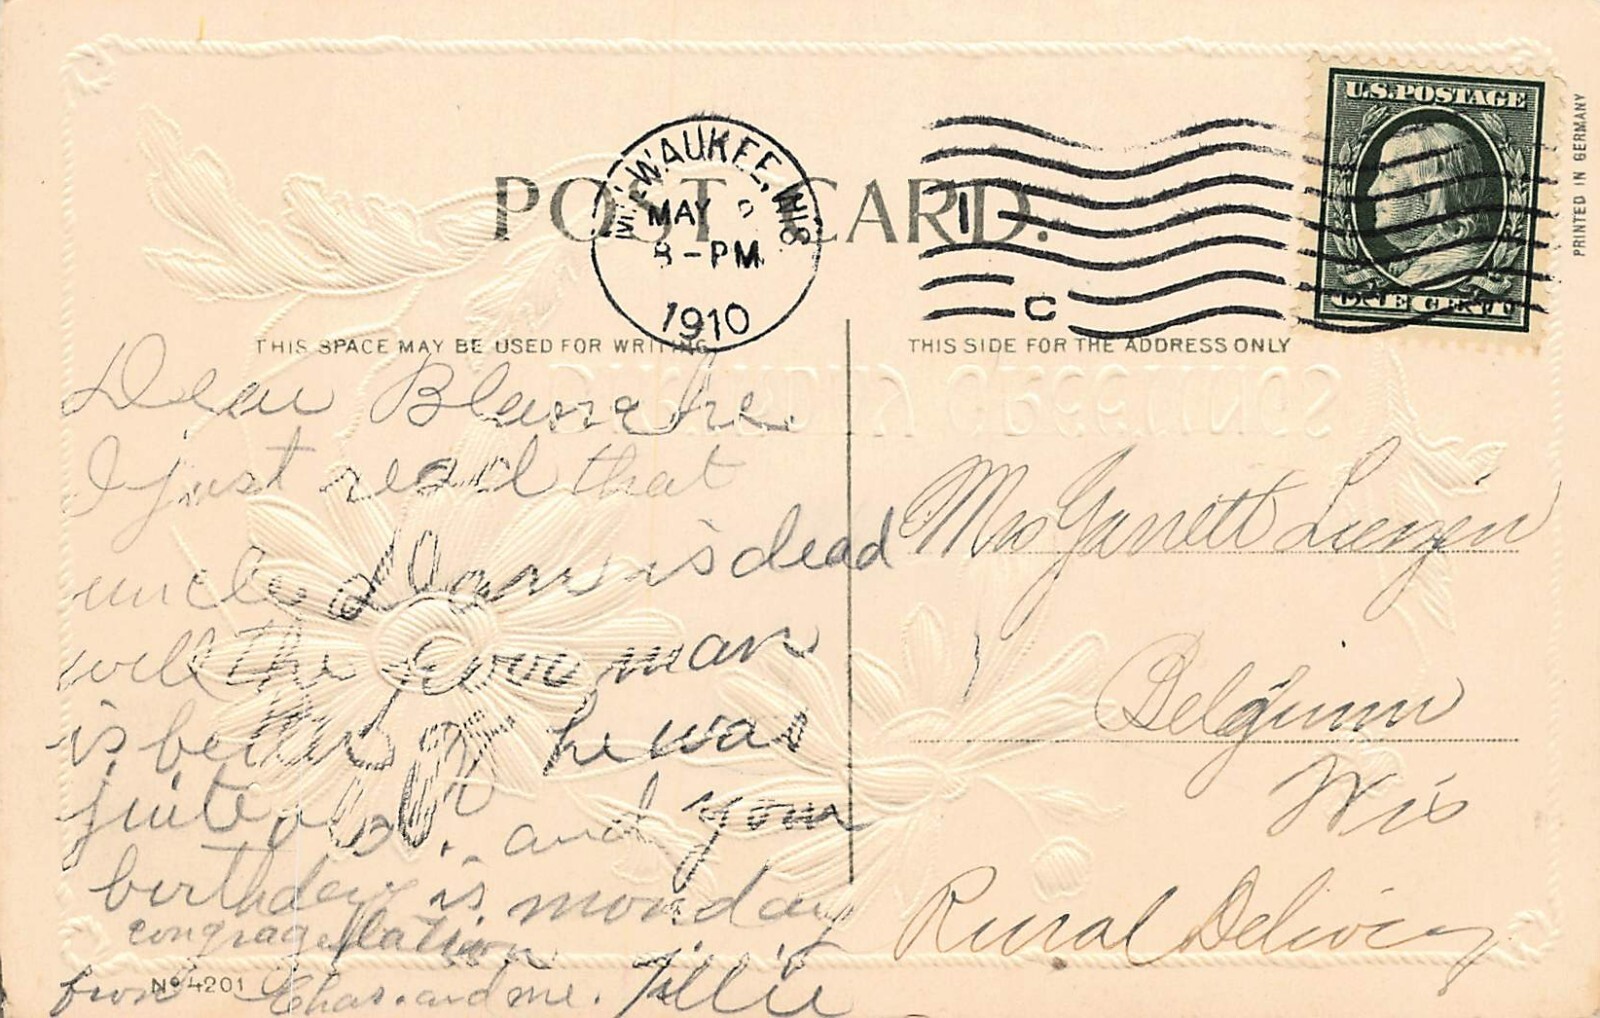 U.S. POSTAGE
ONE CENT
PRINTED IN GERMANY
MILWAUKEE, WIS
MAY
8-PM
1910
1
C
POST CARD.
THIS SPACE MAY BE USED FOR WRITING
THIS SIDE FOR THE ADDRESS ONLY
Dear Blanche
I just read that
uncle is dead
well the poor man
is better off he was
quite old. and your
birthday is monday
from Chas. and me. Tillie
No 4201
Mrs Garrett
Belgium
Wis
Rural Delivery